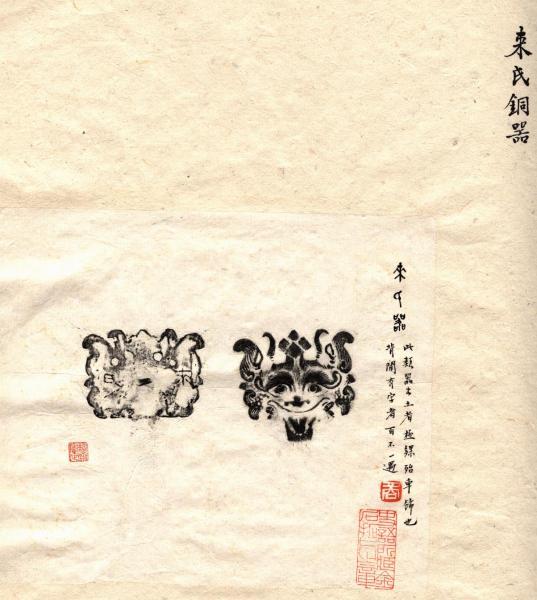 来氏銅器
来氏器
此類器出土者極夥殆車飾也
背間有字者百不一遘